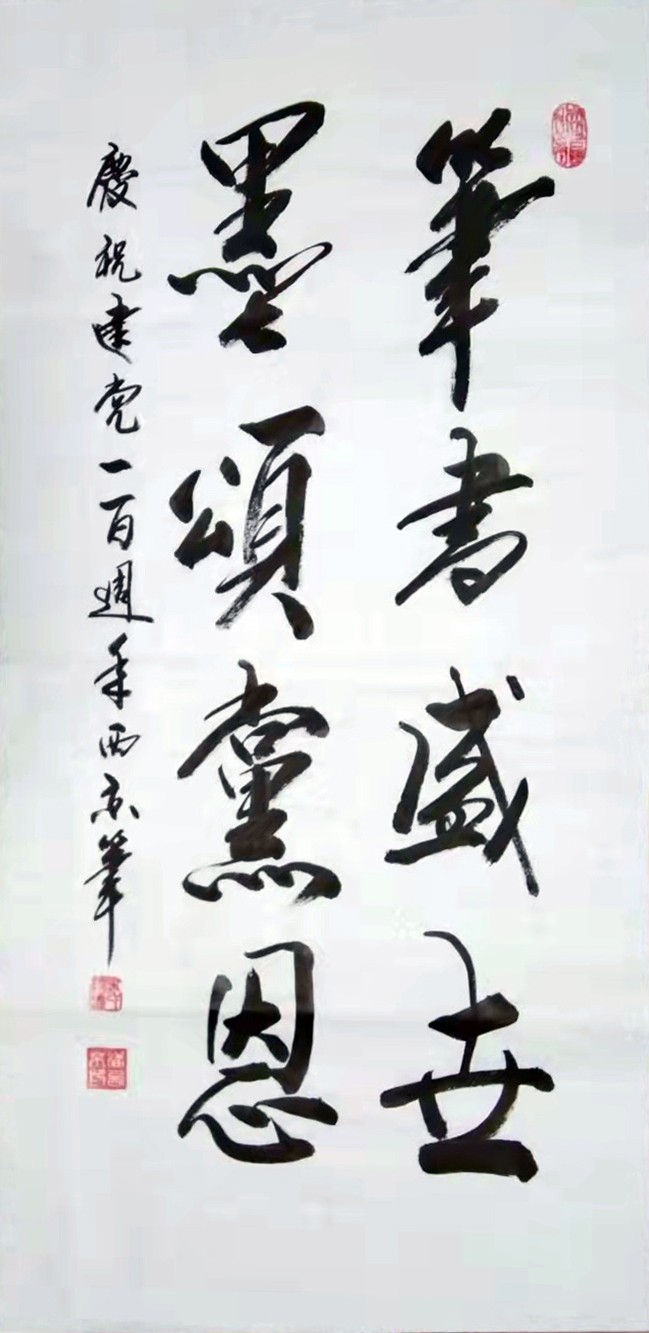 筆書盛世
墨頌黨恩
慶祝建党一百週年西京筆